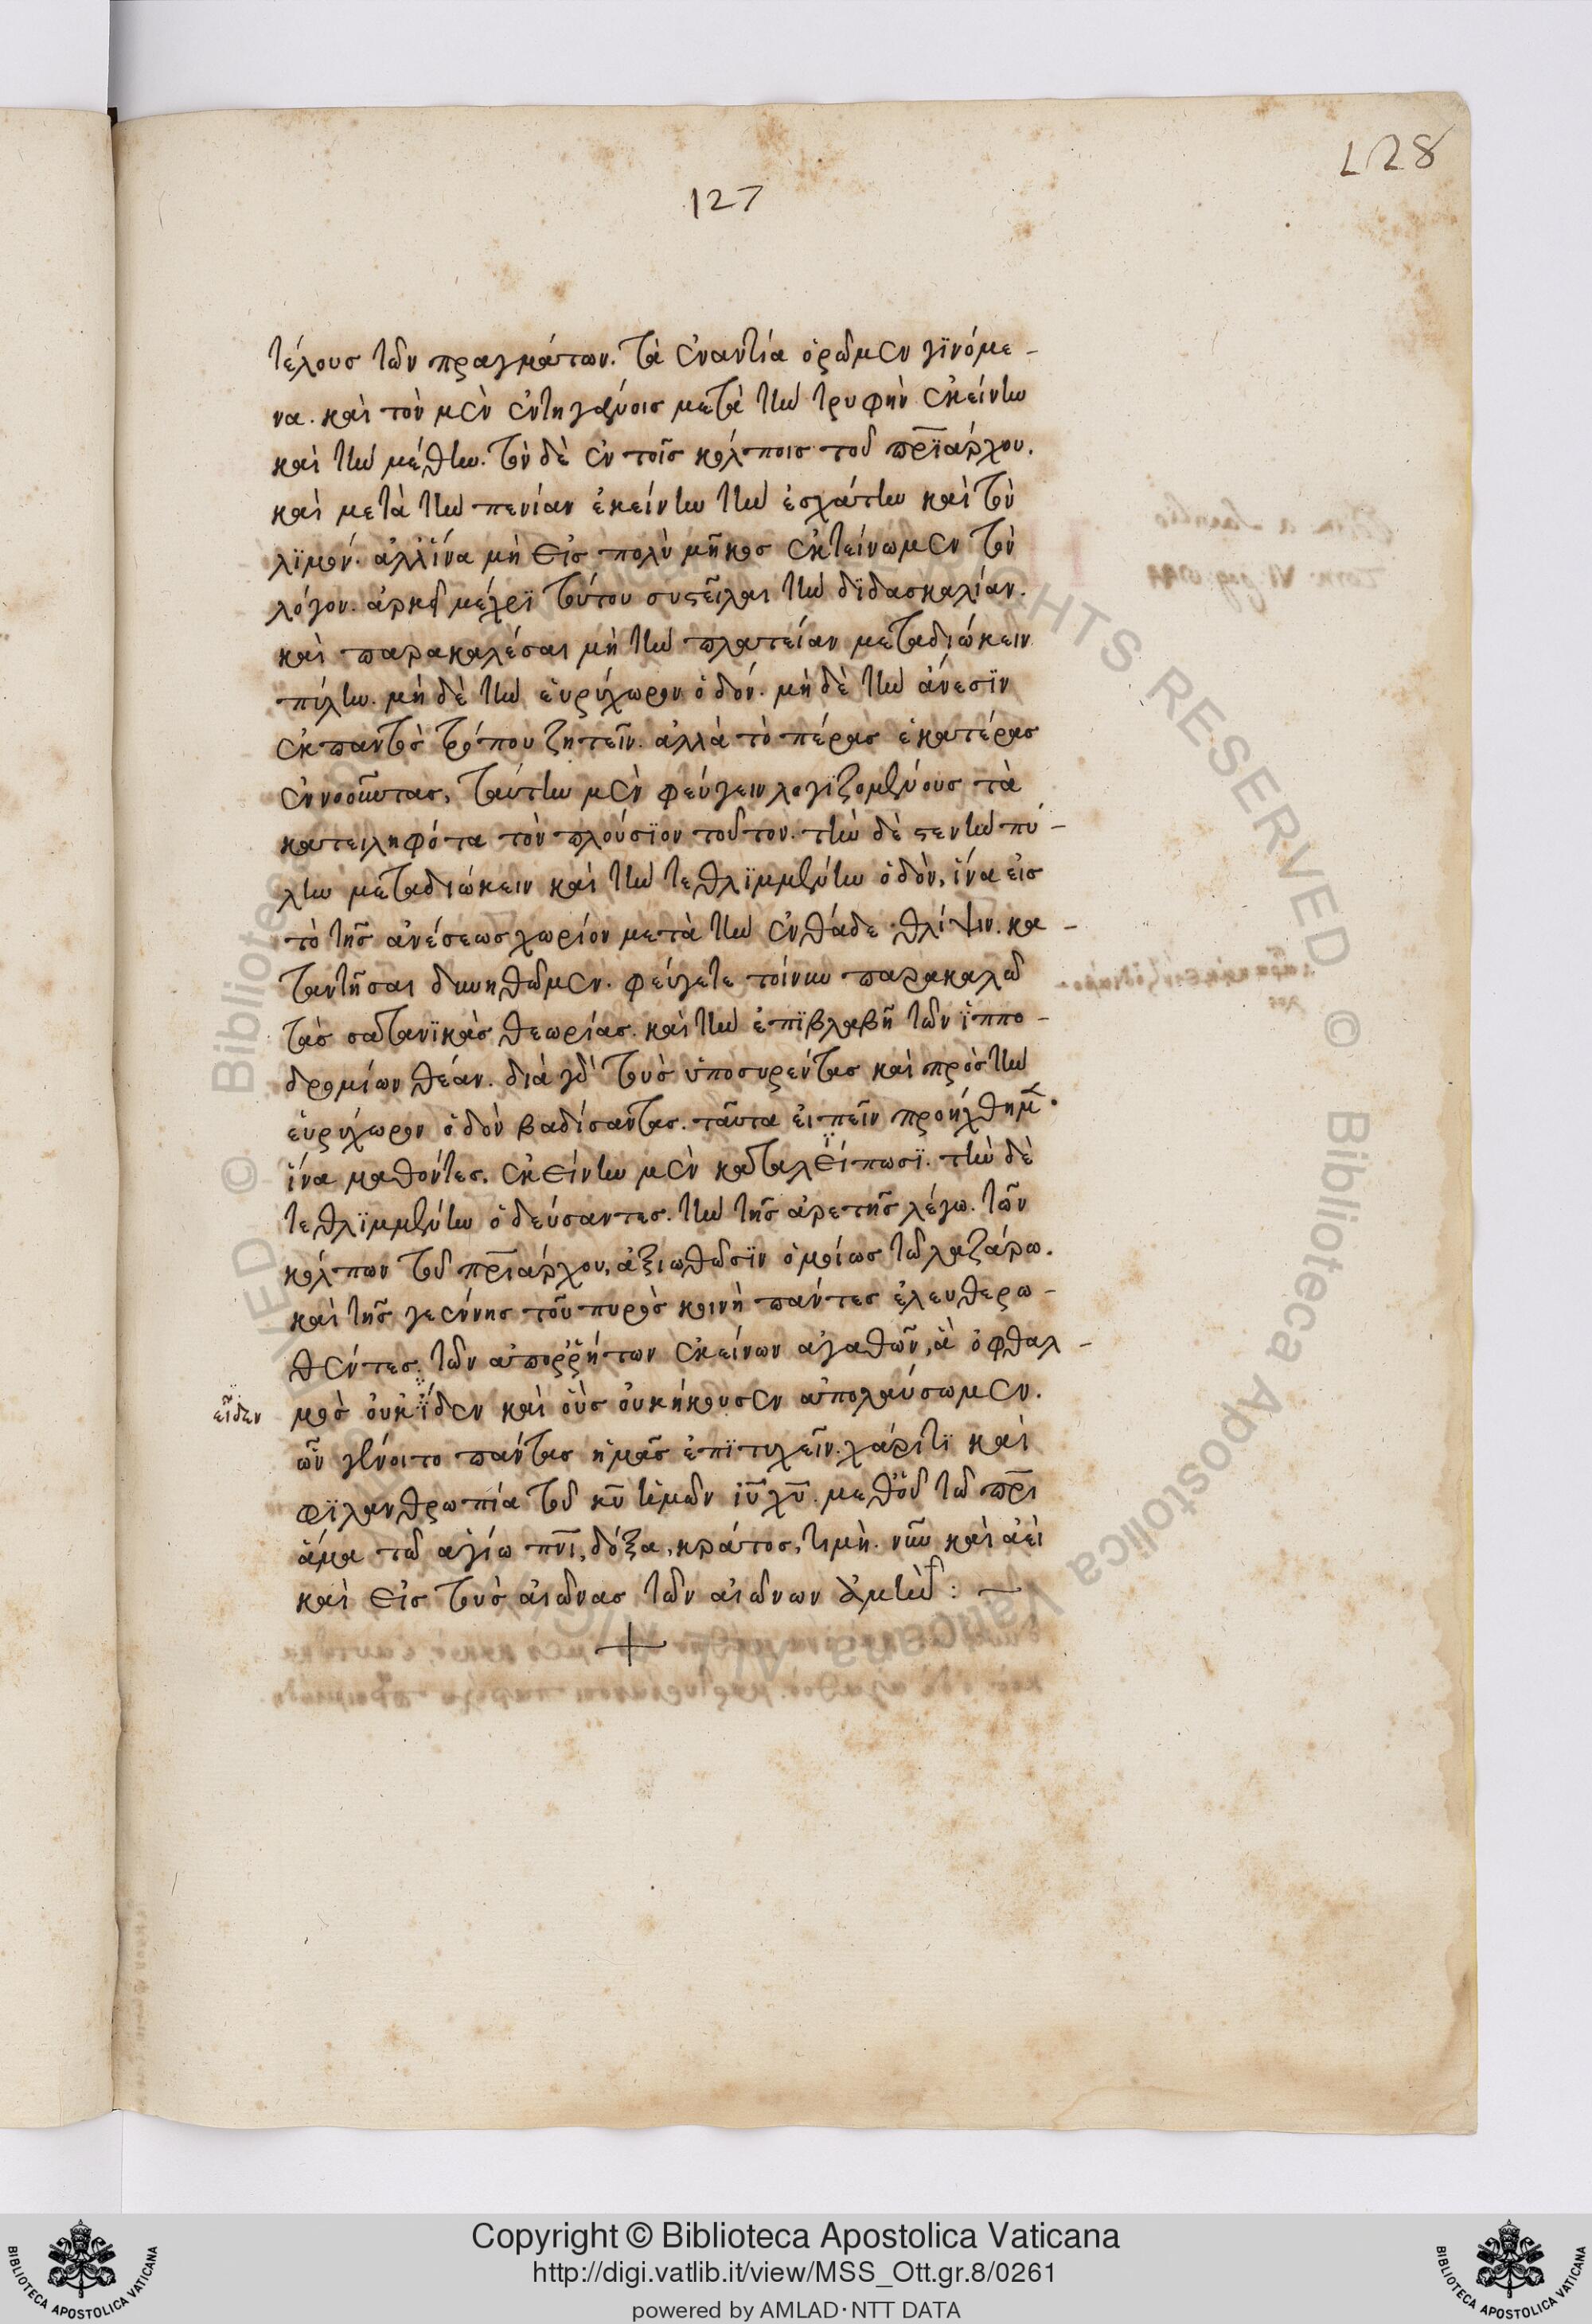 128
127
τέλους τῶν πραγμάτων. τὰ ἐναντία ὁρῶμεν γϊνόμε-
να. καὶ τὸν μὲν ἐν τηγάνοις μετὰ τὴν τρυφὴν ἐκείνην
καὶ τὴν μέθην. τὸν δὲ ἐν τοῖς κόλποις τοῦ πρϊάρχου.
καὶ μετὰ τὴν πενίαν ἐκείνην τὴν ἐσχάτην καὶ τὸν
λϊμόν. ἀλλ' ἵνα μὴ εἰς πολὺ μῆκος ἐκτείνωμεν τὸν
λόγον. ἀρκεῖ μέχρϊ τούτου συστεῖλαι τὴν δϊδασκαλίαν.
καὶ παρακαλέσαι μὴ τὴν πλατείαν μεταδιώκειν
πύλην. μὴ δὲ τὴν εὐρύχωρον ὁδόν. μὴ δὲ τὴν ἄνεσϊν
ἐκ παντὸς τρόπου ζητεῖν. ἀλλὰ τὸ πέρας ἑκατέρας
ἐννοοῦντας, ταύτην μὲν φεύγειν λογϊζομένους τὰ
κατειληφότα τὸν πλούσϊον τοῦτον. τὴν δὲ στενὴν πύ-
λην μεταδιώκειν καὶ τὴν τεθλϊμμένην ὁδὸν, ἵνα εἰς
τὸ τῆς ἀνέσεως χωρίον μετὰ τὴν ἐνθάδε θλίψιν. κα-
ταντῆσαι δυνηθῶμεν. φεύγετε τοίνυν παρακαλῶ
τὰς σατανϊκὰς θεωρίας. καὶ τὴν ἐπϊβλαβῆ τῶν ἱππο-
δρομίων θέαν. διὰ γὰρ τοὺς ὑποσυρέντας καὶ πρὸς τὴν
εὐρύχωρον ὁδὸν βαδίσαντας. ταῦτα εἰπεῖν προήχθημεν.
ἵνα μαθόντες. ἐκείνην μὲν καταλείπωσϊ. τὴν δὲ
τεθλϊμμένην ὁδεύσαντες. τὴν τῆς ἀρετῆς λέγω. τῶν
κόλπων τοῦ πρϊάρχου, ἀξιωθῶσϊν ὁμοίως τῶ λαζάρω.
καὶ τῆς γεέννης τοῦ πυρὸς κοινὴ πάντες ἐλευθερω-
θέντες. τῶν ἀπορρήτων ἐκείνων ἀγαθῶν, ἃ ὀφθαλ-
εἶδεν
μὸς οὐκ ἴδεν καὶ οὖς οὐκ ἤκουσεν ἀπολαύσωμεν.
ὧν γένοιτο πάντας ἡμᾶς ἐπϊτυχεῖν. χάριτϊ καὶ
φϊλανθρωπία τοῦ κῦ ἡμῶν ἰῦ χῦ. μεθ' οὗ τῶ πρι
ἅμα τῶ ἁγίω πνι, δόξα, κράτος, τιμὴ. νῦν καὶ ἀεὶ
καὶ εἰς τοὺς αἰῶνας τῶν αἰώνων ἀμήν: —
© Biblioteca Apostolica Vaticana ALL RIGHTS RESERVED
BIBLIOTECA APOSTOLICA VATICANA
Copyright © Biblioteca Apostolica Vaticana
http://digi.vatlib.it/view/MSS_Ott.gr.8/0261
powered by AMLAD·NTT DATA
BIBLIOTECA APOSTOLICA VATICANA